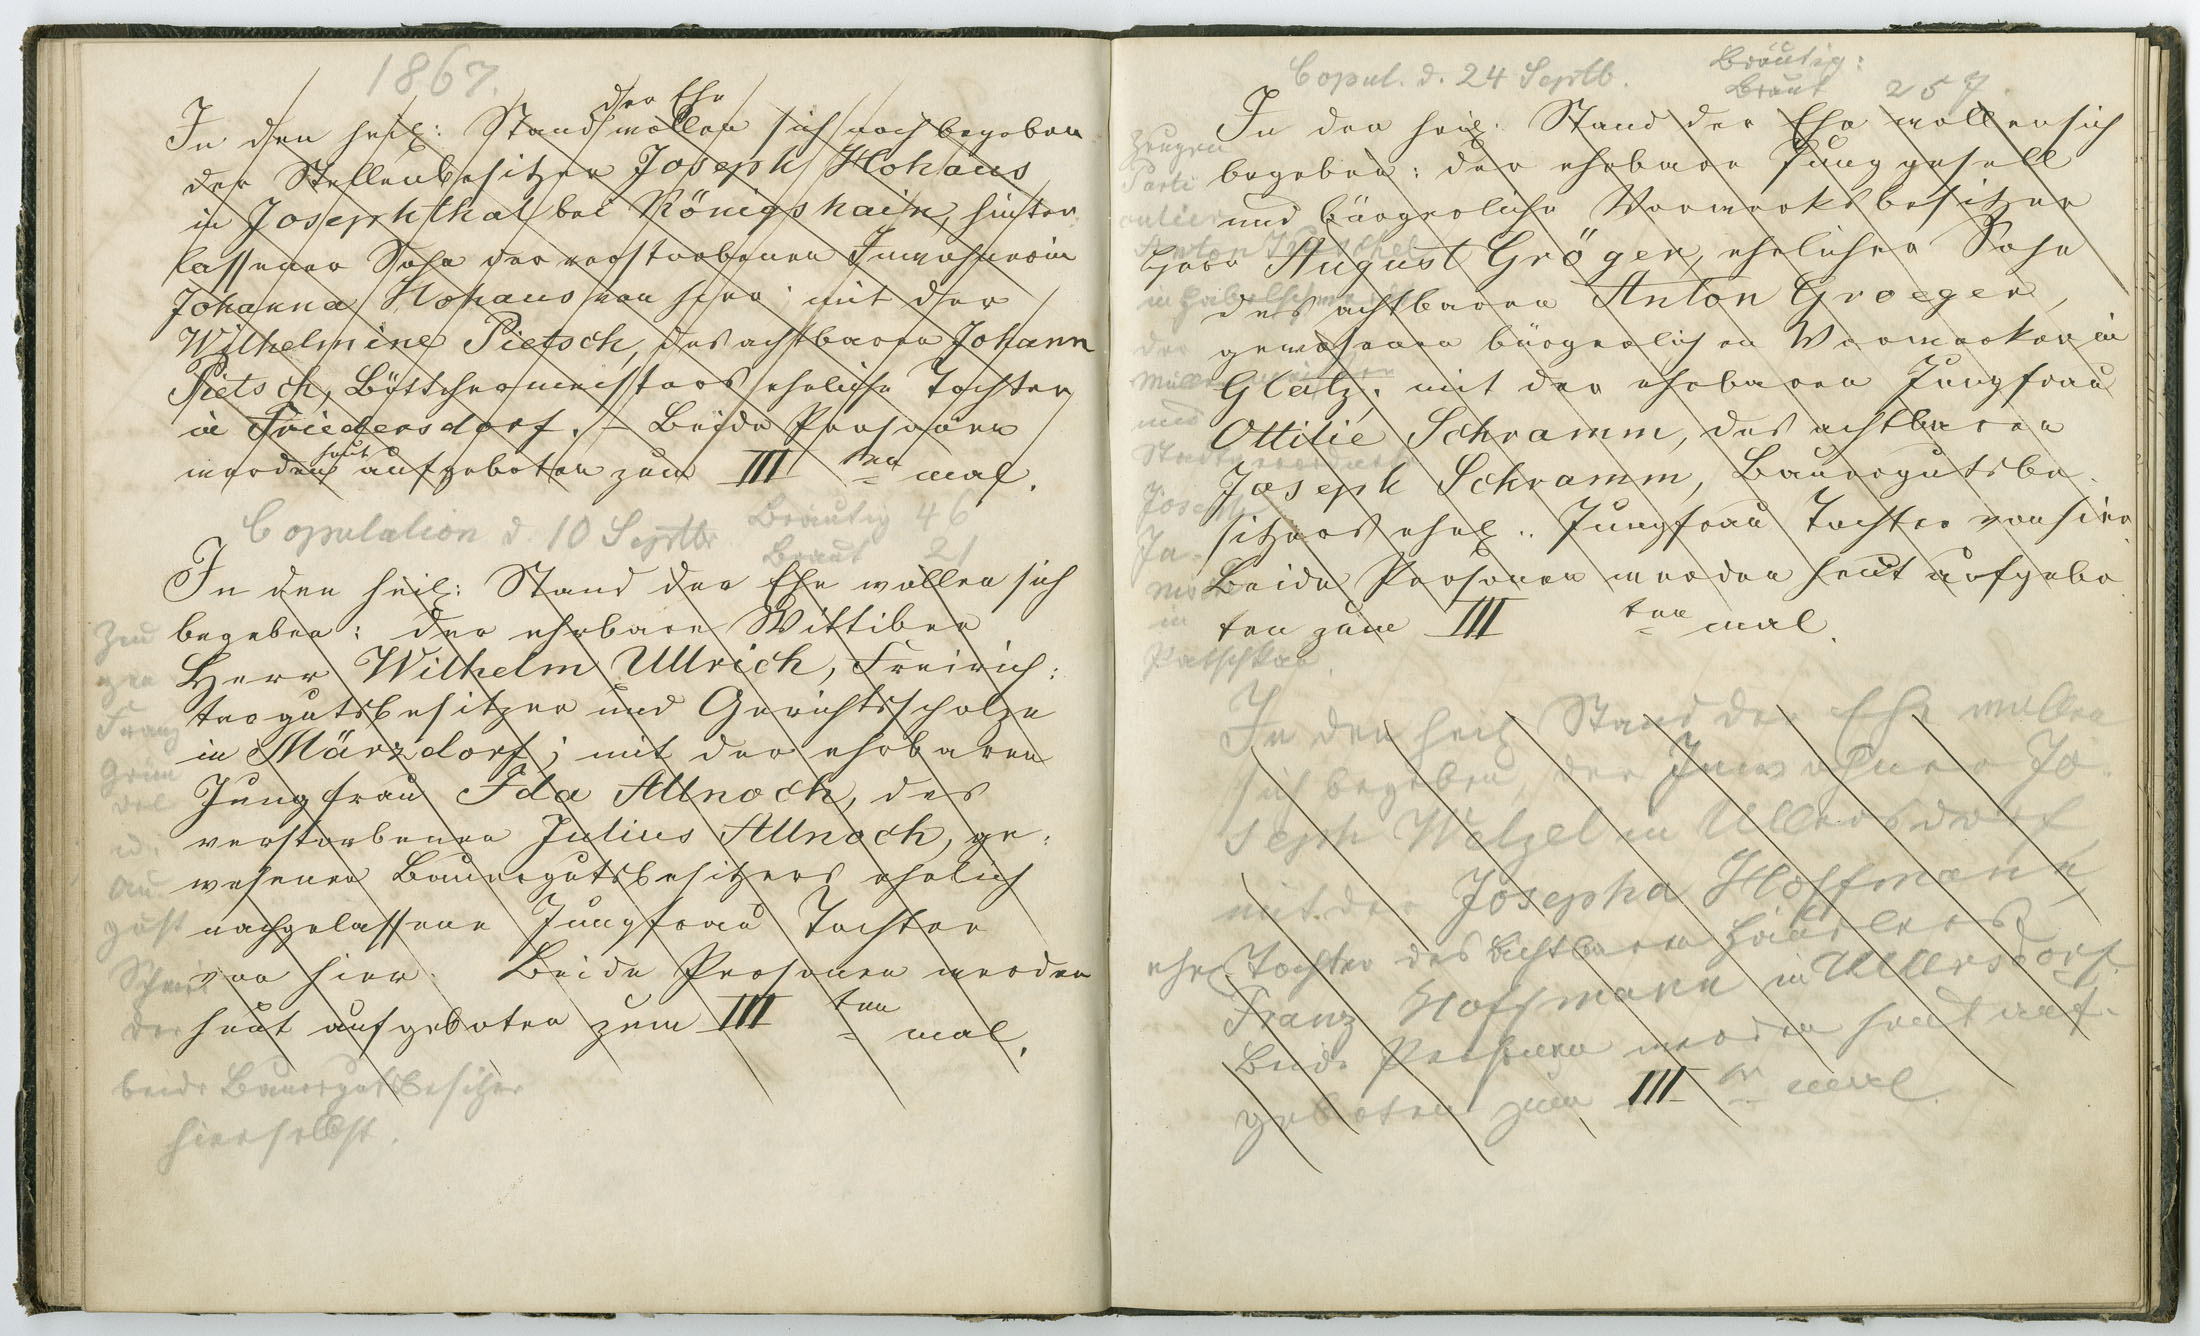 1867.
In den heil: Stand der Ehe wollen sich noch begeben
der Stellenbesitzer Joseph Hohaus
in Josephthal bei Königshain, hinter
lassener Sohn der verstorbenen Inwohnerin
Johanna Hohaus von hier; mit der
Wilhelmine Pietsch, des achtbaren Johann
Pietsch, Böttchermeisters eheliche Tochter
in Friedersdorf. – Beide Personen
werden heut aufgeboten zum III ten mal.
Copulation d. 10 Septbr Bräutig 46
Braut 21
In den heil: Stand der Ehe wollen sich
begeben: der ehrbare Wittiber
Herr Wilhelm Ullrich, Freirich:
tergutsbesitzer und Gerichtsscholze
in Märzdorf; mit der ehrbaren
Jungfrau Ida Allnoch, des
verstorbenen Julius Allnoch, ge:
wesenen Bauergutsbesitzers ehelich
nachgelassene Jungfrau Tochter
von hier. Beide Personen werden
heut aufgeboten zum III ten mal.
Zeu
gen
Franz
Grün
del
u.
Au
gust
der
beide Bauergutsbesitzer
hierselbst.
Copul. d. 24 Septb. Bräutig:
Braut 25
In den heil: Stand der Ehe wollen sich
begeben: der ehrbare Junggesell
und bürgerliche Vorwerksbesitzer
Herr August Gröger, ehelicher Sohn
des achtbaren Anton Groeger,
gewesenen bürgerlichen Vorwerker in
Glatz; mit der ehrbaren Jungfrau
Ottilie Schramm, des achtbaren
Joseph Schramm, Bauergutsbe
sitzers ehel.. Jungfrau Tochter von hier
Beide Personen werden heut aufgebo
ten zum III ten mal.
Zeugen
Parti
culier
Anton
in Habelschwerdt
der
und
Joseph
in
Patschkau.
In den heil Stand der Ehe wollen
sich begeben, der Inwohner Jo
seph Welzel in Ullersdorf
mit der Josepha Hoffmann,
ehel Tochter des achtbaren Häuslers
Franz Hoffmann in Ullersdorf.
Beide Personen werden heut auf-
geboten zum III ten mal.